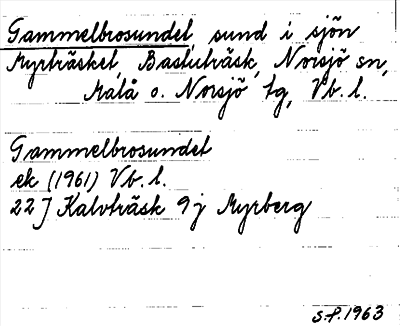 Gammelbrosundet, sund i sjön
Myrträsket, Bastuträsk, Norsjö sn,
Malå o. Norsjö tg, Vb. l.
Gammelbrosundet
ek (1961) Vb. l.
22J Kalvträsk 9j Myrberg
S.f. 1963